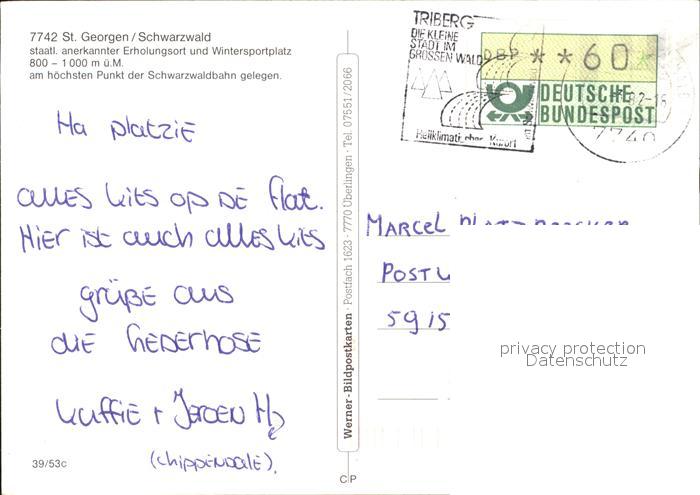 7742 St. Georgen / Schwarzwald
staatl. anerkannter Erholungsort und Wintersportplatz
800 – 1000 m ü.M.
am höchsten Punkt der Schwarzwaldbahn gelegen.
Ha platzie
alles kits op de flat.
Hier ist auch alles kits
grüße aus
die Lederhose
Kuffie + Jeroen H
(chippendale).
39/53c
Werner-Bildpostkarten · Postfach 1623 · 7770 Überlingen · Tel. 07551/2066
C P
TRIBERG
DIE KLEINE
STADT IM
GROSSEN WALD
Heilklimatischer Kurort
DBP * * 60
DEUTSCHE
BUNDESPOST
82-16
7740
Marcel
Post
5915
privacy protection
Datenschutz